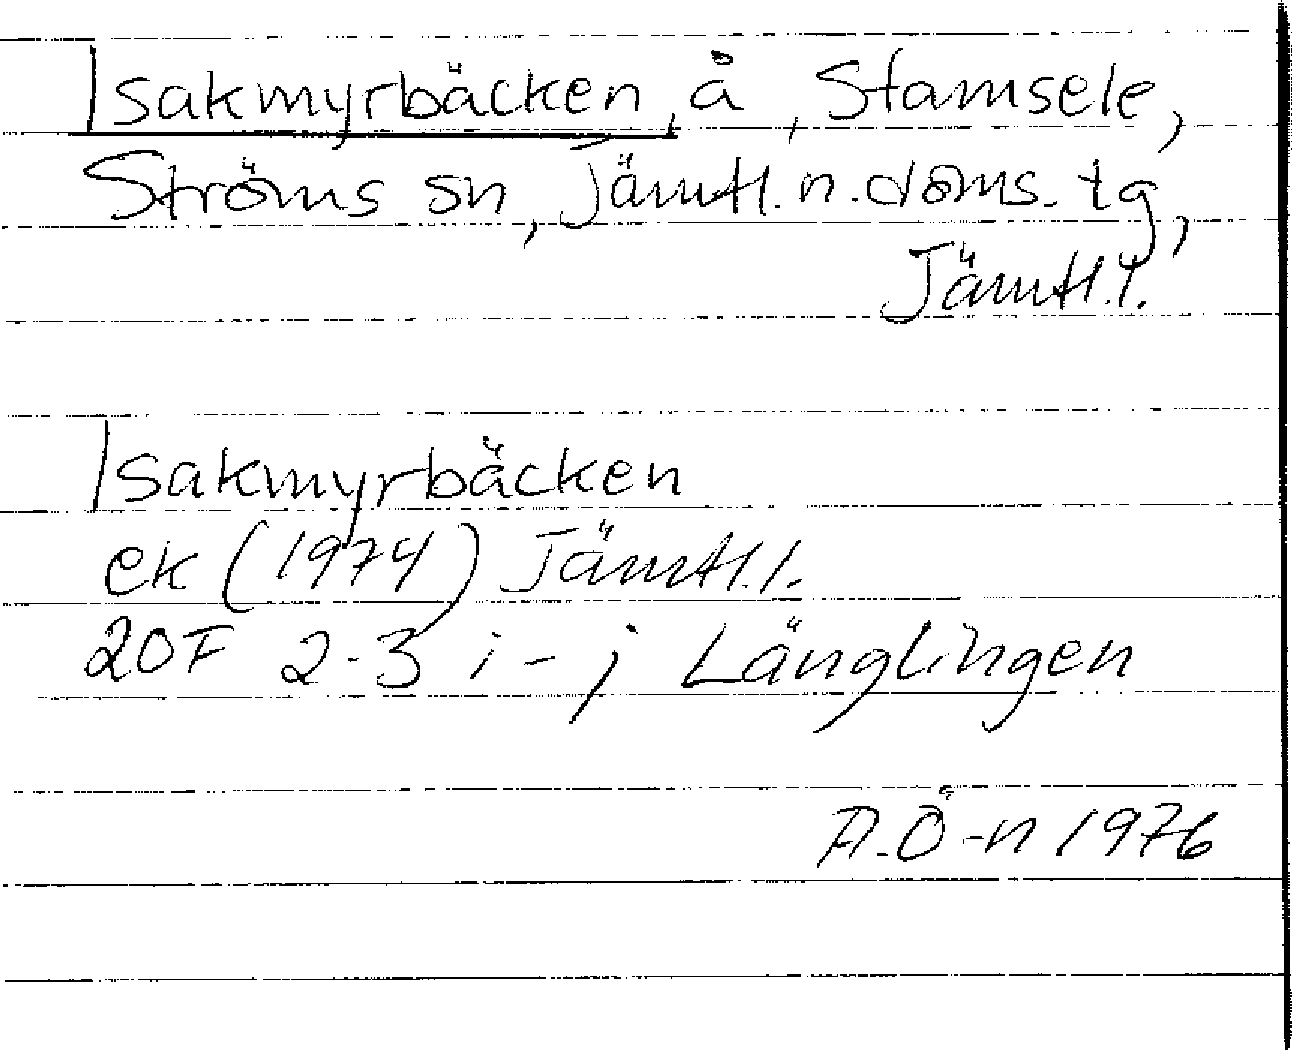 Isakmyrbäcken, å, Stamsele,
Ströms sn, Jämtl. n. doms. tg,
Jämtl. l.
Isakmyrbäcken
ek (1974) Jämtl. l.
20F 2-3 i-j Länglingen
A.Ö-n 1976